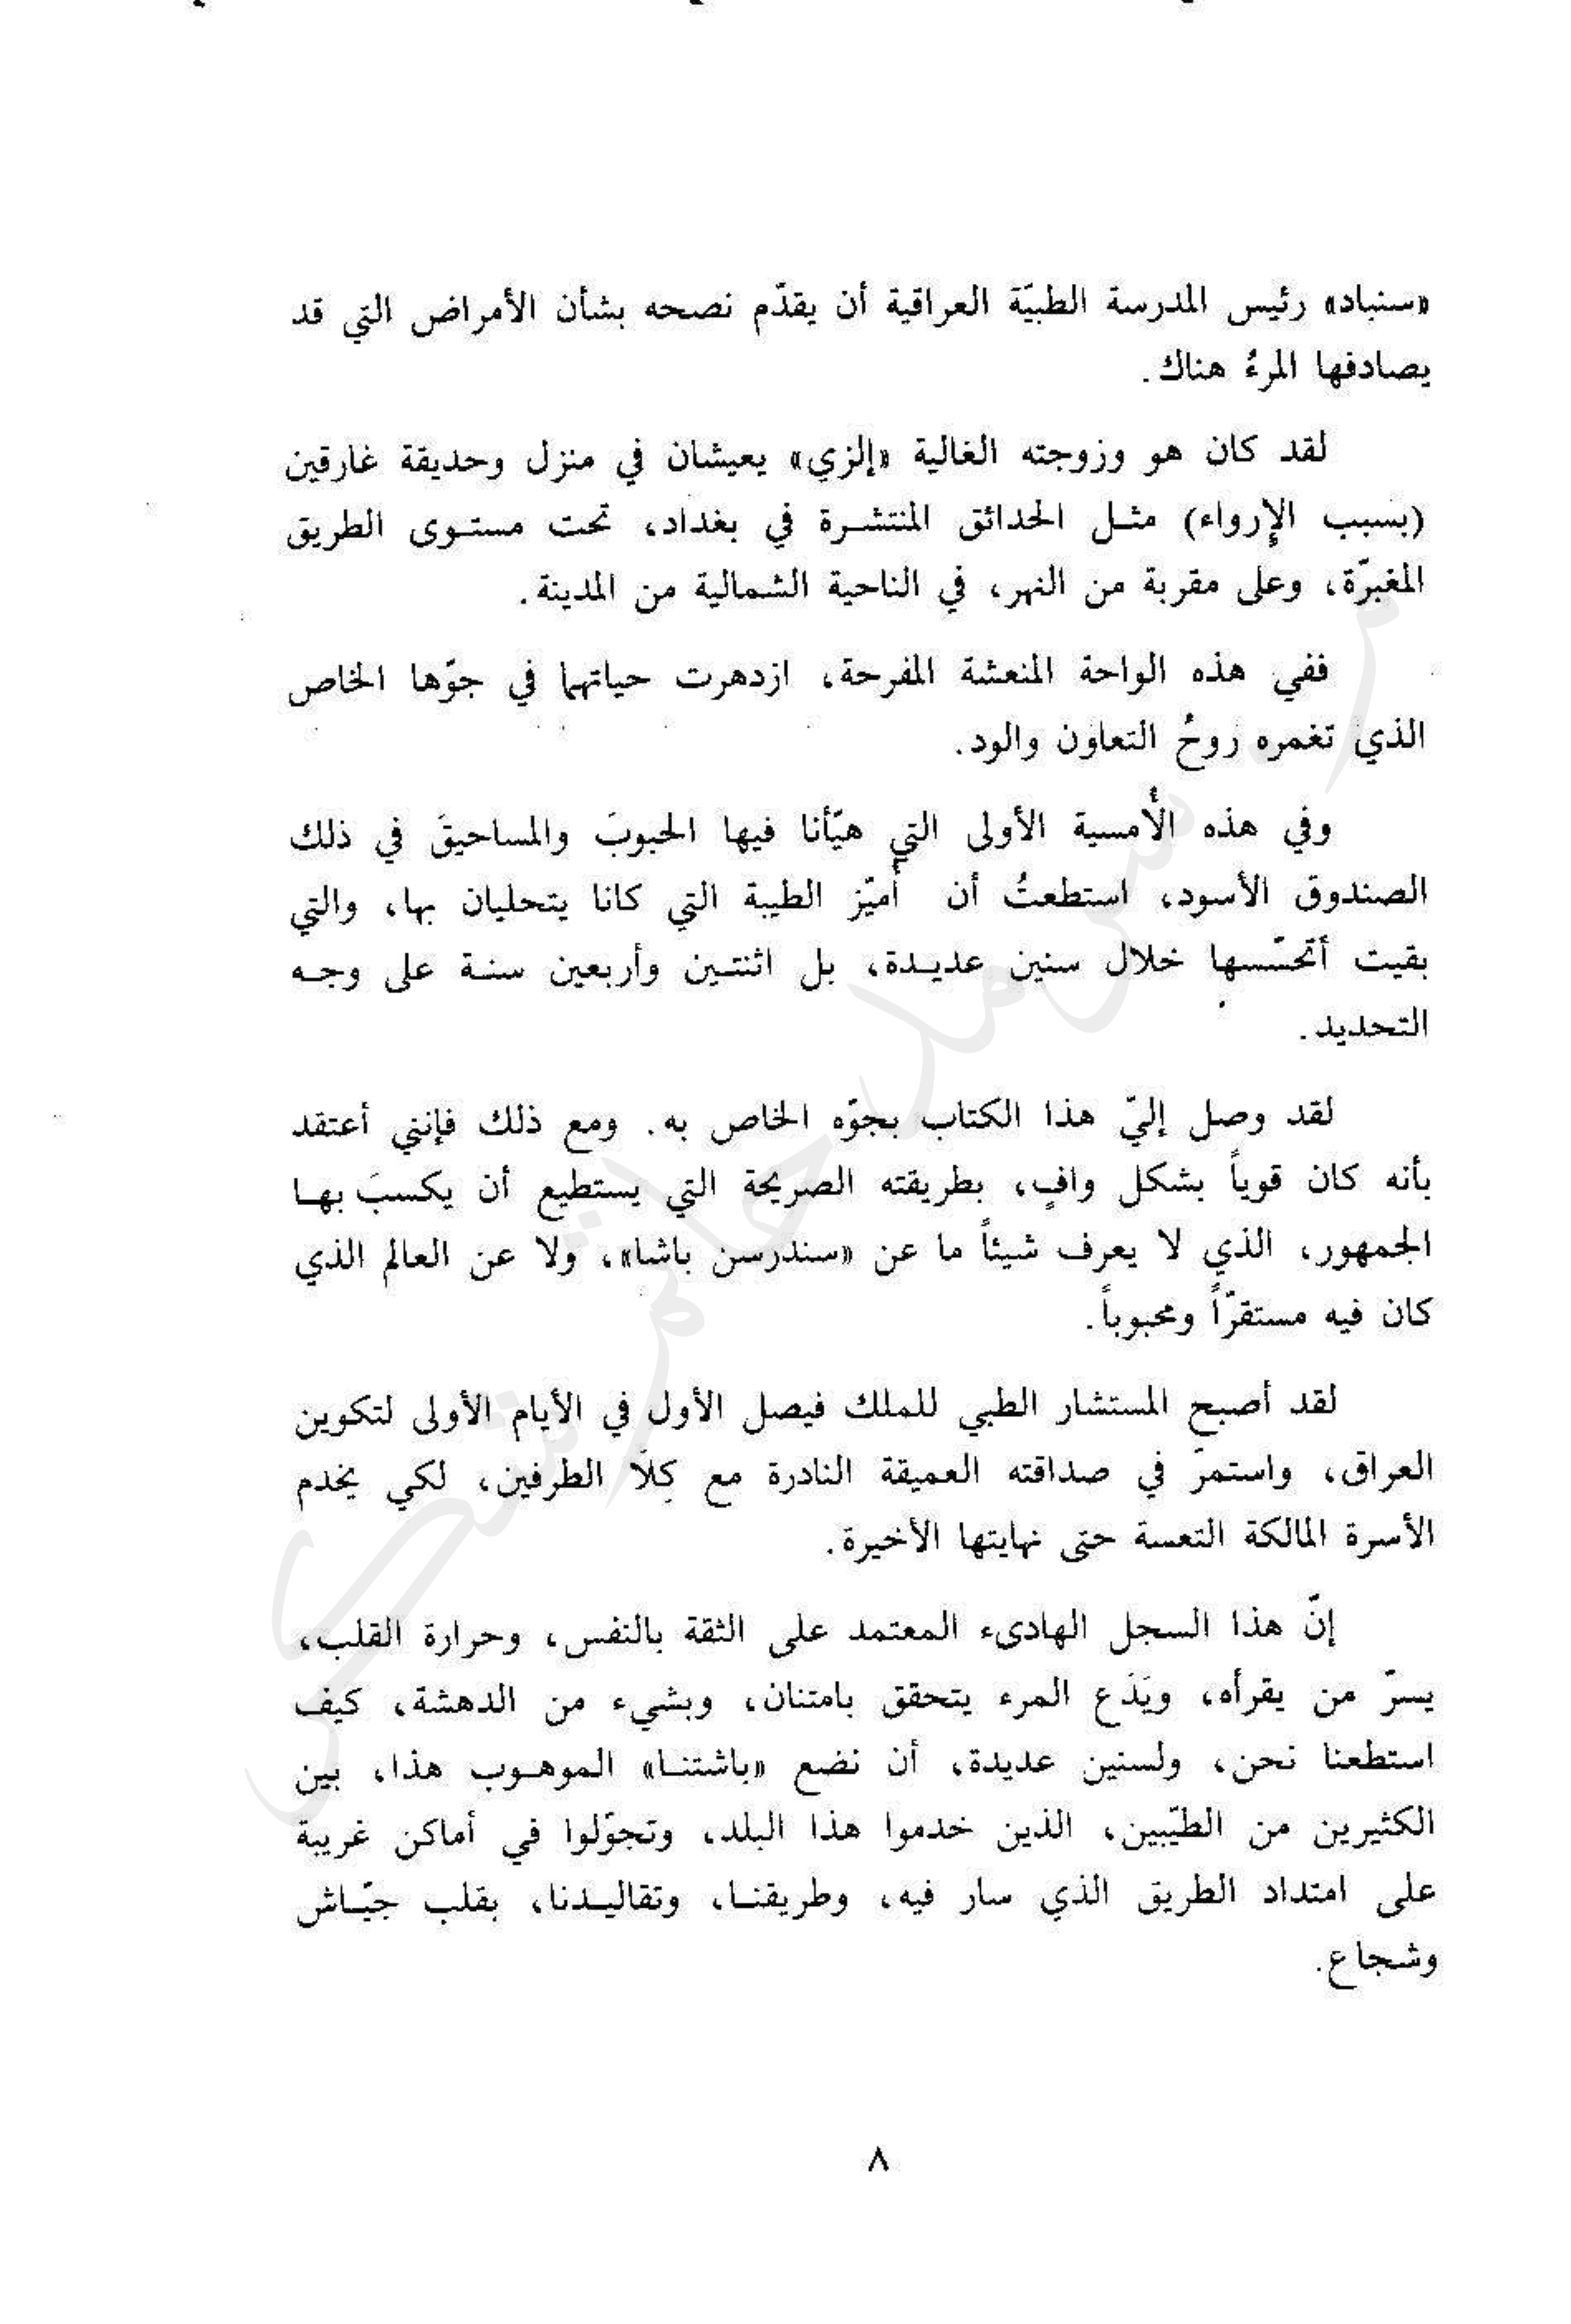 «سنباد» رئيس المدرسة الطبيّة العراقية أن يقدّم نصحه بشأن الأمراض التي قد
يصادفها المرءُ هناك.
لقد كان هو وزوجته الغالية «إلزي» يعيشان في منزل وحديقة غارقين
(بسبب الإرواء) مثـل الحدائق المنتشـرة في بغداد، تحت مستـوى الطريق
المغبرّة، وعلى مقربة من النهر، في الناحية الشمالية من المدينة.
ففي هذه الواحة المنعشة المفرحة، ازدهرت حياتهما في جوّها الخاص
الذي تغمره روحُ التعاون والود.
وفي هذه الأُمسية الأولى التي هيّأنا فيها الحبوبَ والمساحيقَ في ذلك
الصندوق الأسود، استطعتُ أن أُميّز الطيبة التي كانا يتحليان بها، والتي
بقيت أتحسّسها خلال سنين عديـدة، بل اثنتـين وأربعين سنـة على وجـه
التحديد.
لقد وصل إليّ هذا الكتاب بجوّه الخاص به. ومع ذلك فإنني أعتقد
بأنه كان قوياً بشكل وافٍ، بطريقته الصريحة التي يستطيع أن يكسبَ بهـا
الجمهور، الذي لا يعرف شيئاً ما عن «سندرسن باشا»، ولا عن العالم الذي
كان فيه مستقرّاً ومحبوباً.
لقد أصبح المستشار الطبي للملك فيصل الأول في الأيام الأولى لتكوين
العراق، واستمرّ في صداقته العميقة النادرة مع كِلَا الطرفين، لكي يخدم
الأسرة المالكة التعسة حتى نهايتها الأخيرة.
إنّ هذا السجل الهادىء المعتمد على الثقة بالنفس، وحرارة القلب،
يسرّ من يقرأه، ويَدَع المرء يتحقق بامتنان، وبشيء من الدهشة، كيف
استطعنا نحن، ولسنين عديدة، أن نضع «باشتنـا» الموهـوب هذا، بين
الكثيرين من الطيّبين، الذين خدموا هذا البلد، وتجوّلوا في أماكن غريبة
على امتداد الطريق الذي سار فيه، وطريقنـا، وتقاليـدنا، بقلب جيّـاش
وشجاع.
٨